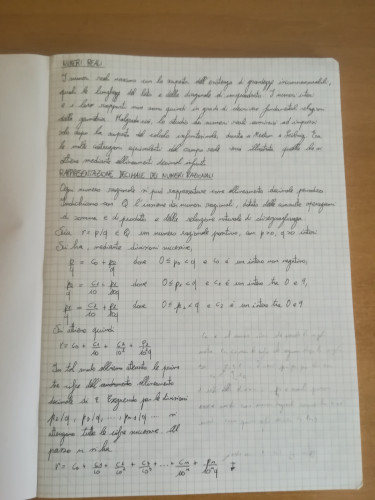 NUMERI REALI
I numeri reali nascono con la scoperta dell'esistenza di grandezze incommensurabili,
quali la lunghezza del lato e della diagonale di un quadrato. I numeri interi
e i loro rapporti non sono quindi in grado di descrivere fondamentali
della geometria. Malgrado ciò, lo studio dei numeri reali cominciò ad imporsi
solo dopo la scoperta del calcolo infinitesimale, dovuta a Newton e Leibniz. Tra
le molte costruzioni equivalenti del campo reale sarà illustrata quella che si
ottiene mediante allineamenti decimali infiniti.
RAPPRESENTAZIONE DECIMALE DEI NUMERI RAZIONALI
Ogni numero razionale si può rappresentare come allineamento decimale periodico.
Indichiamo con Q l'insieme dei numeri razionali, dotato delle consuete operazioni
di somma e di prodotto e della relazione naturale di disuguaglianza.
Sia r = p/q ∈ Q un numero razionale positivo, con p>0, q>0 interi.
Si ha, mediante divisioni successive,
p/q = c0 + p0/q dove 0 ≤ p0 < q e c0 è un intero non negativo,
p0/q = c1/10 + p1/10q dove 0 ≤ p1 < q e c1 è un intero tra 0 e 9,
p1/q = c2/10 + p2/10q dove 0 ≤ p2 < q e c2 è un intero tra 0 e 9
Si ottiene quindi
r = c0 + c1/10 + c2/10² + p2/10²q
In tal modo abbiamo ottenuto le prime
tre cifre dell' allineamento
decimale di r. Eseguendo poi le divisioni
p2/q, p3/q, ..., pn-1/q ... si
ottengono tutte le cifre successive. Al
passo n si ha
r = c0 + c1/10 + c2/10² + c3/10³ + ... + cn/10ⁿ + pn/10ⁿq